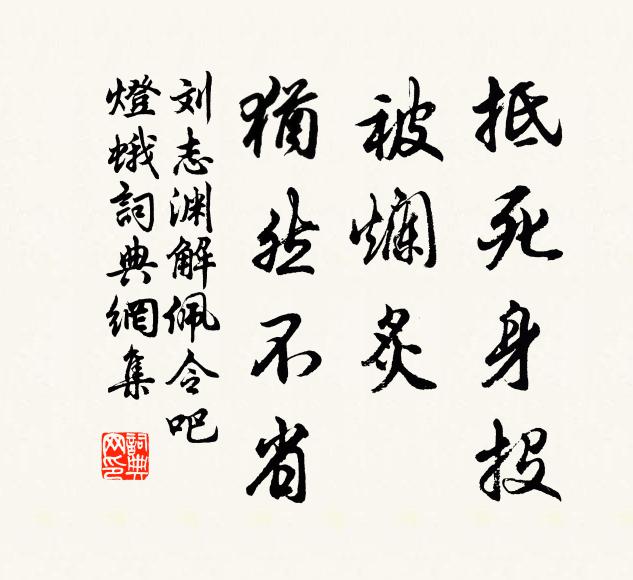 抵死身投
被爛炙
猶然不省
刘志渊解佩令吧
燈蛾詞典網集
詞典
网印